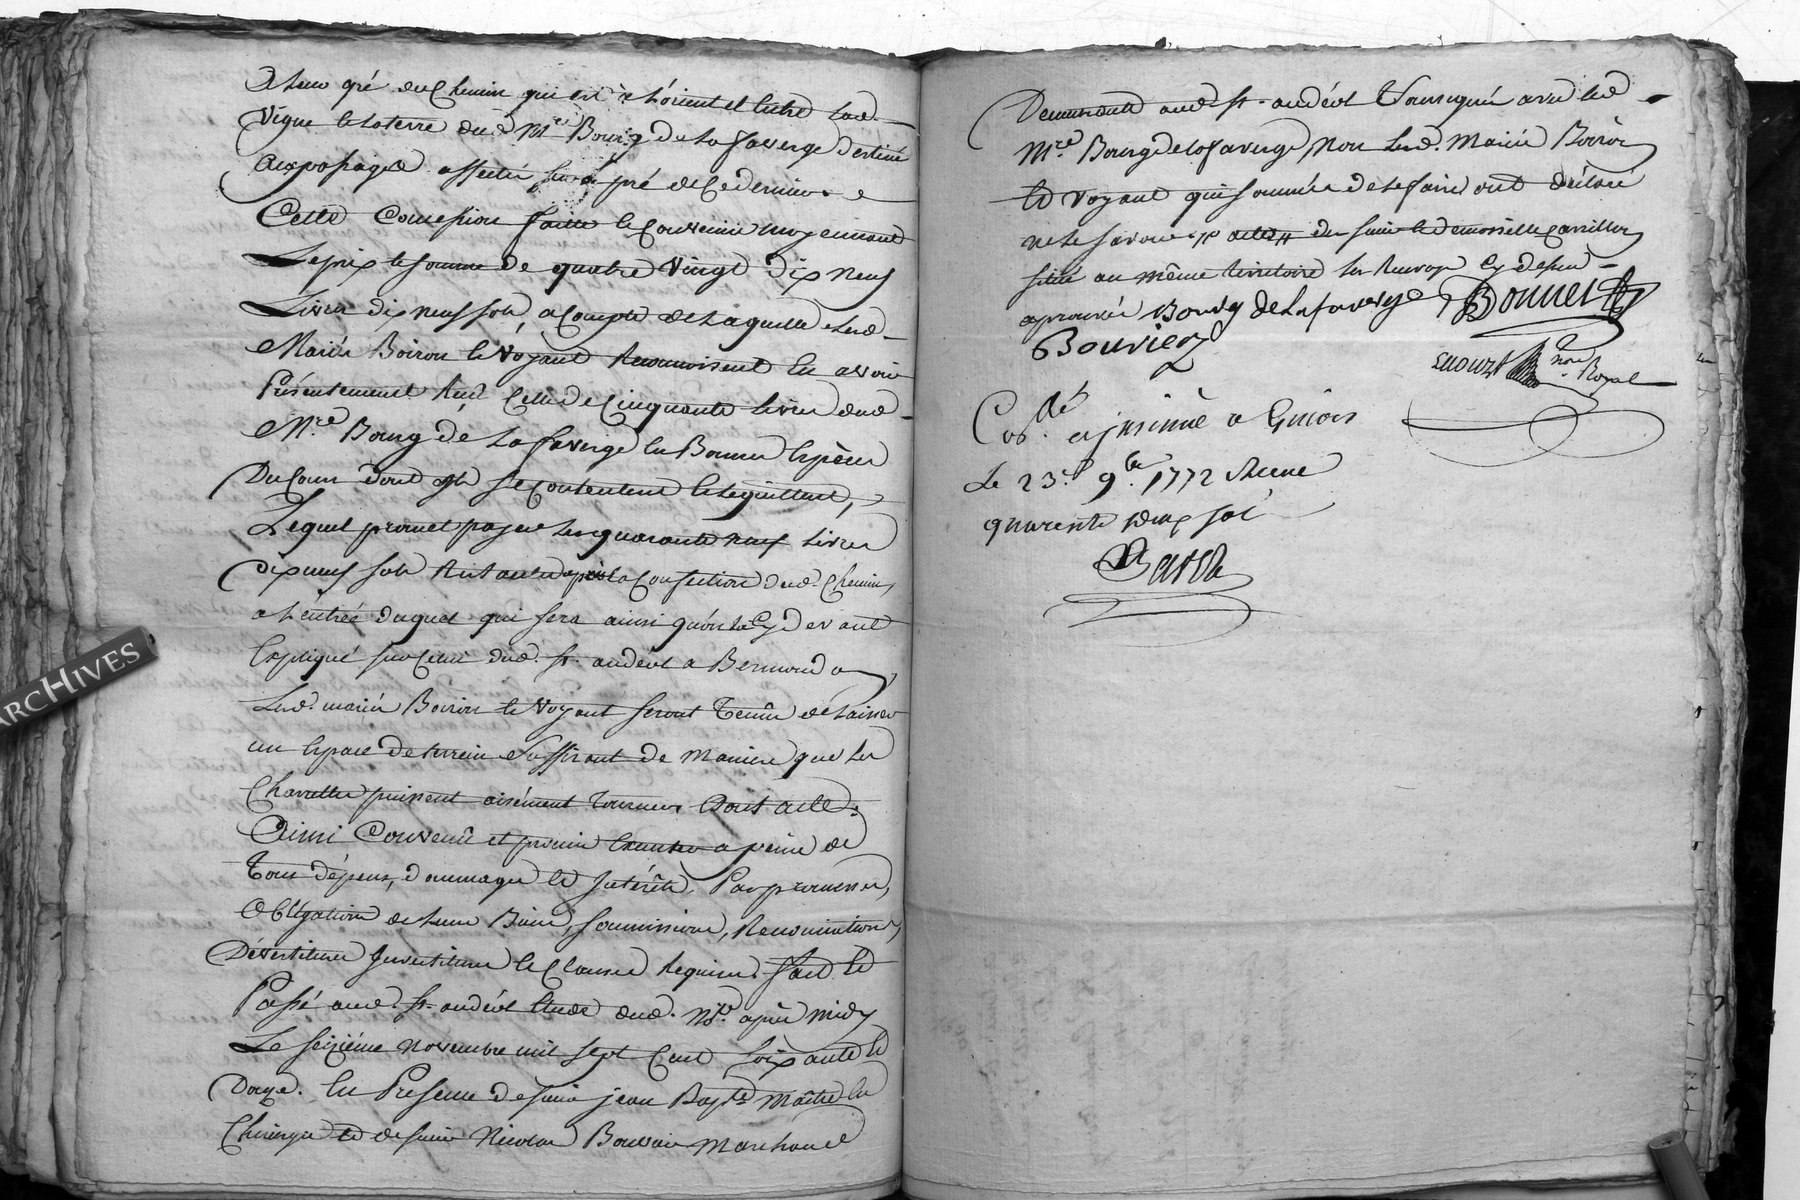 a leur gré du Chemin qui est à l'orient et entre lad.
Vigne et la terre dud. Mre Bourg de La faverge destiné
au passage affecté sur le pré de ce dernier.
Cette Concession faitte et Convenüe moyennant
Le prix et somme de quatre Vingt dix neuf
Livres dix neuf sols, a Compte de Laquelle Lesd.
Mariés Boiron et Voyant Reconnoissent en avoir
Présentement Reçu Celle de Cinquante Livres dud.
Mre Bourg de La faverge en Bonnes Espèces
Du Cours dont ils se Contentent et le quittent,
Lequel promet payer Les quarante neuf Livres
dix neuf sols Restantes après la Confection dud. Chemin,
a L'entrée duquel qui sera ainsi qu'on l'a Cy devant
Expliqué sur Celui dud. St. andéol a
Lesd. mariés Boiron et Voyant seront Tenûs de Laisser
un Espace de terrein suffisant de Maniere que Les
Charettes puissent aisément Tourner. Dont acte.
Ainsi Convenû et promis Exécuter a peine de
Tous dépens, dommages et Intérêts. Par promesses,
Obligation de Leurs Biens, soumissions, Renonciations,
Dévestiture Investiture et Clauses Requises. fait et
Passé aud. St. andéol Etude dud. Nre après midy
Le seizième novembre mil sept Cent soixante et
Douze. En Presence de sieur jean Bapte Maître en
Chirurgie et de sieur Nicolas Bouvier Marchand
Demeurants aud. St. andéol Soussignés avec led.
Mre Bourg de la faverge Non Lesd. Mariés Boiron
et Voyant qui sommés de le faire ont déclaré
ne le savoir
situé au même territoire Les Renvoys Cy dessus
aprouvés Bourg de La faverge Bonnet
Bouvier
nore Royal
Collé et insinué a Givors
Le 23e 9bre 1772 Reçu
quarente deux sols